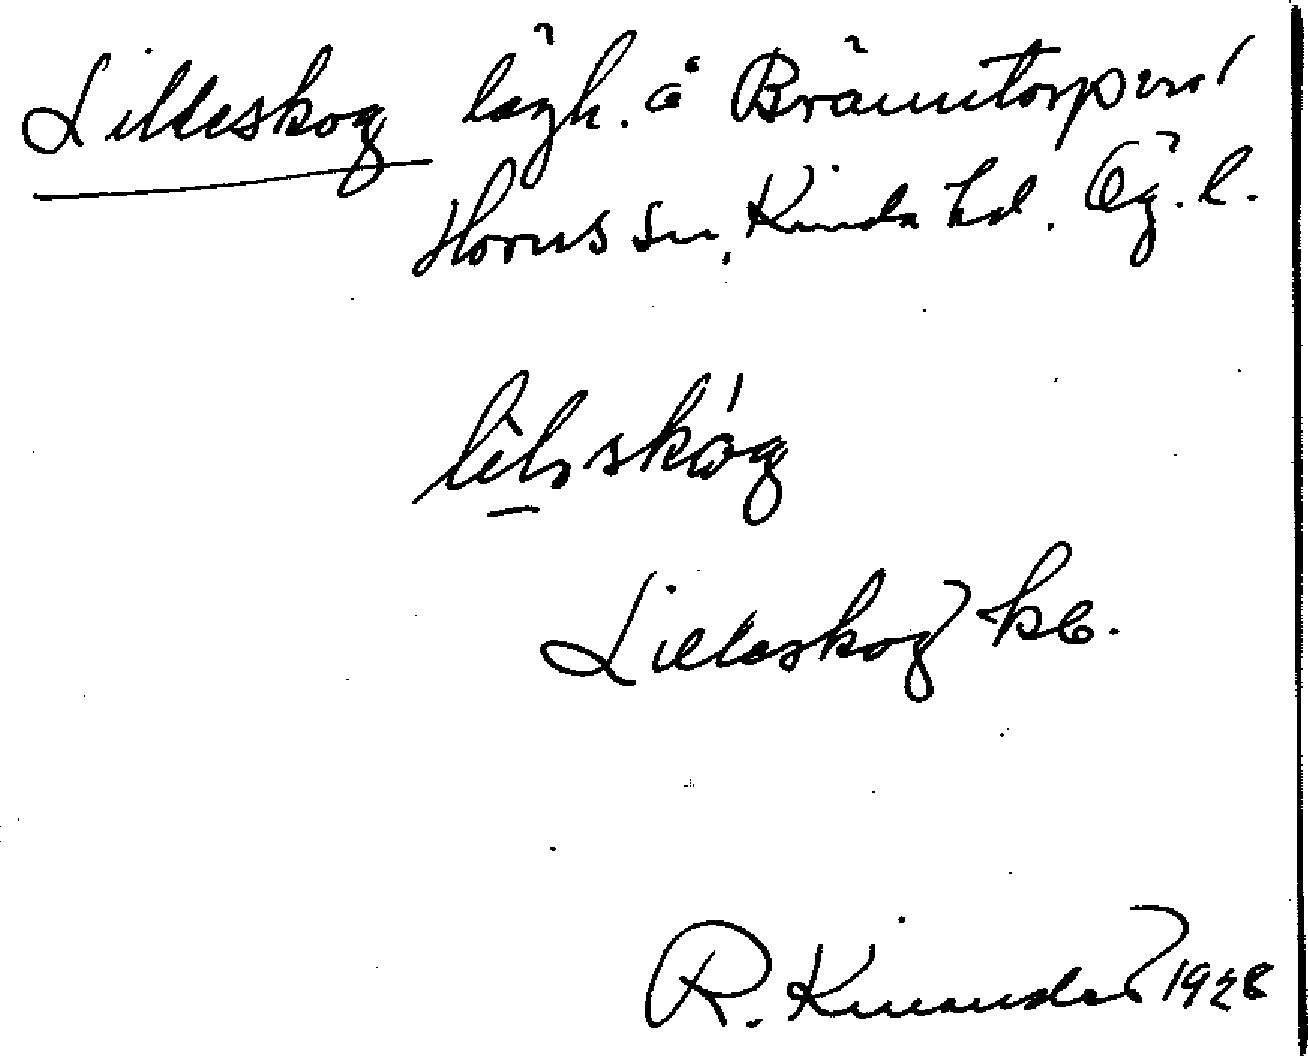 Lilleskog lägh. å Bränntorpen
Horns sn, Kinda hd. Ög. l.
lilsskóg
Lilleskog kb.
R. Kinander 1928